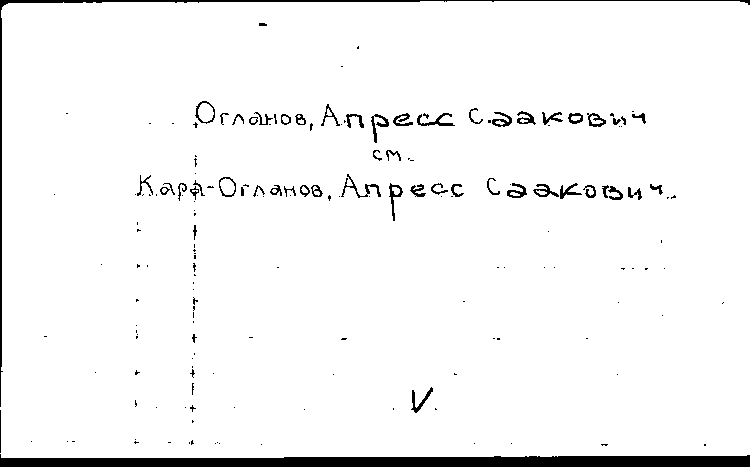 Огланов, Апресс Саакович
см.
Кара-Огланов, Апресс Саакович.
V